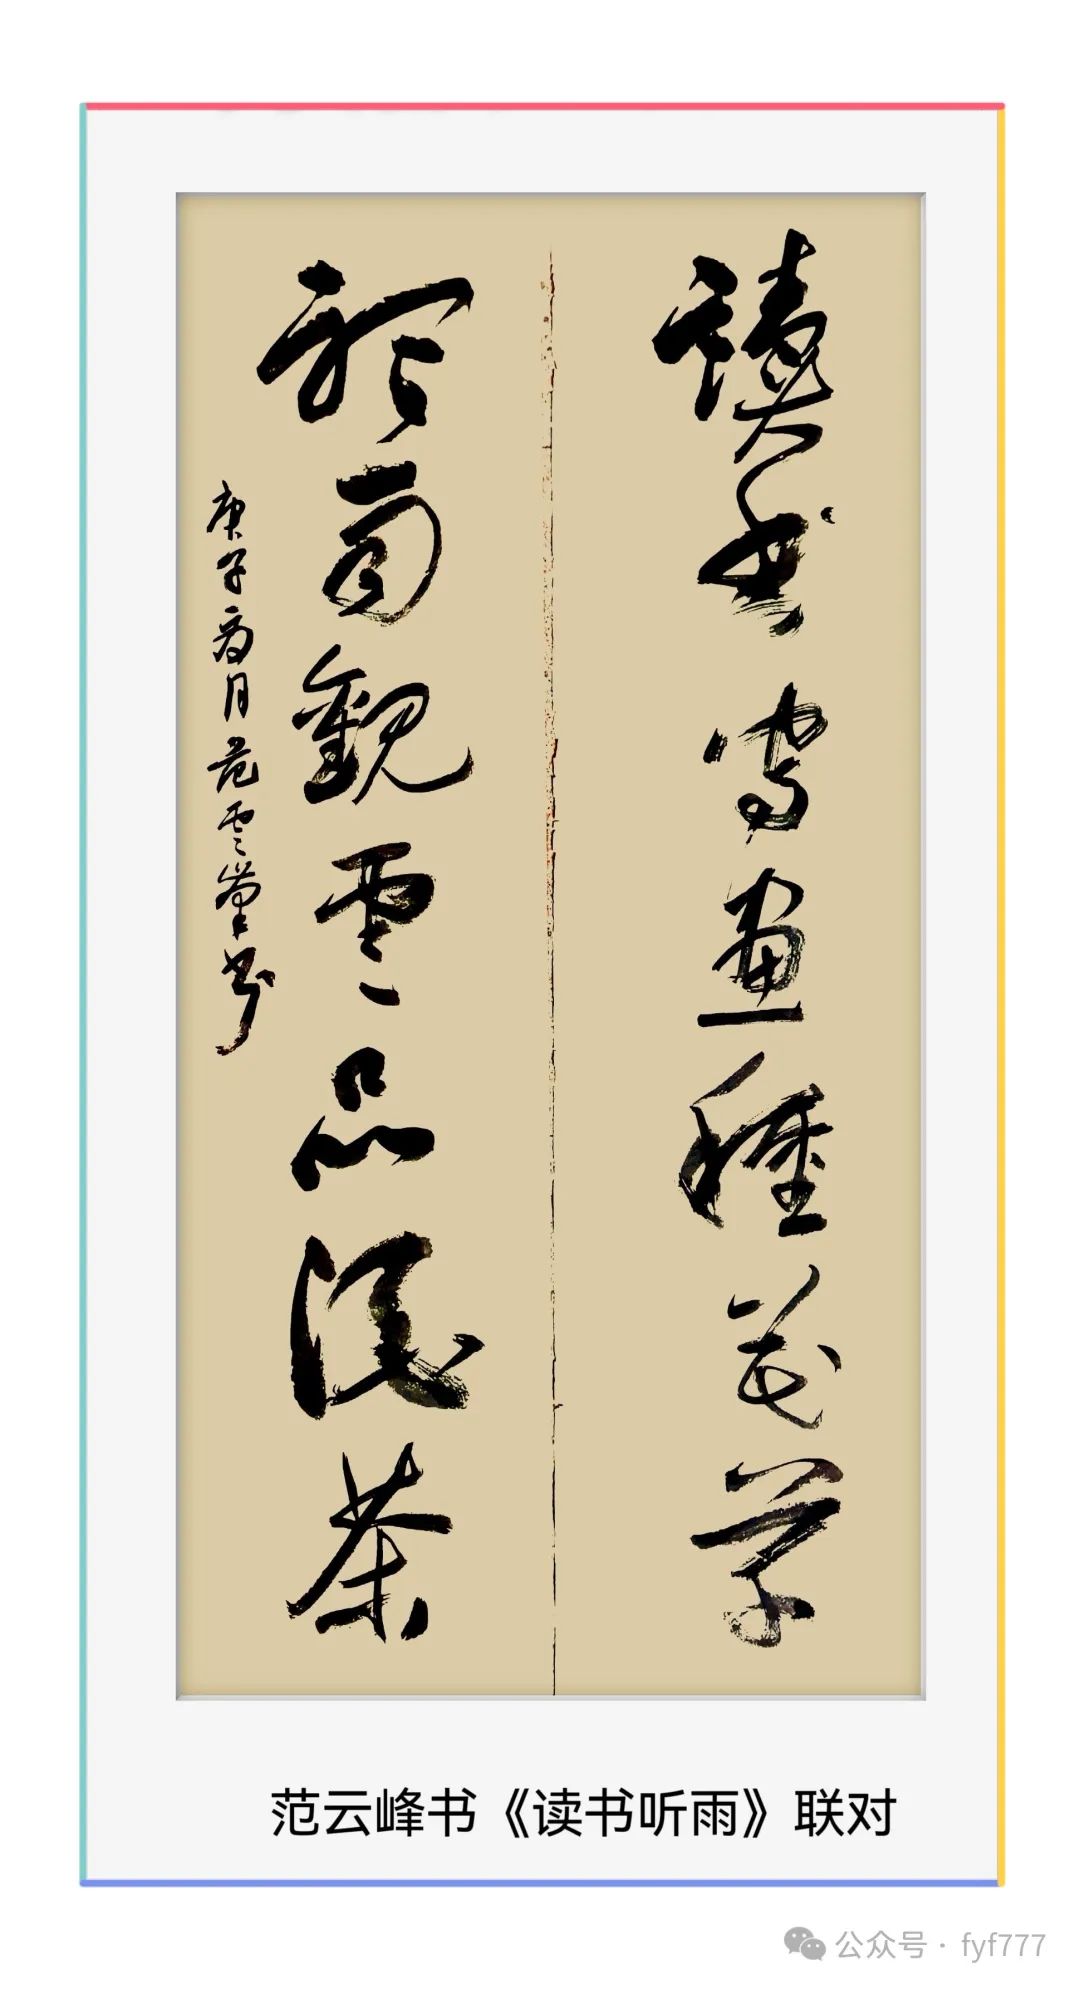 讀書寫畫種花草
聽雨觀雲品茶
庚子月范雲峯書
范云峰书《读书听雨》联对
公众号 · fyf777